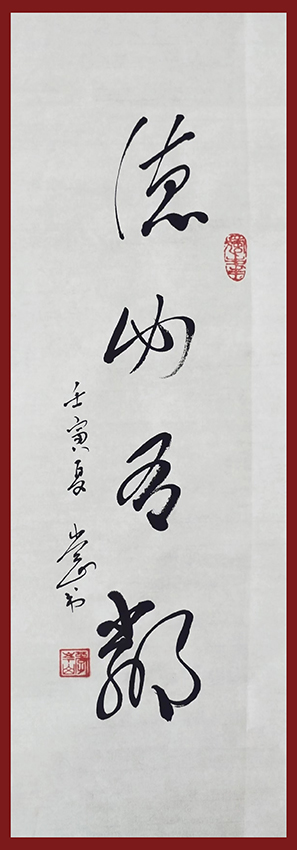 德必有鄰
壬寅夏 书